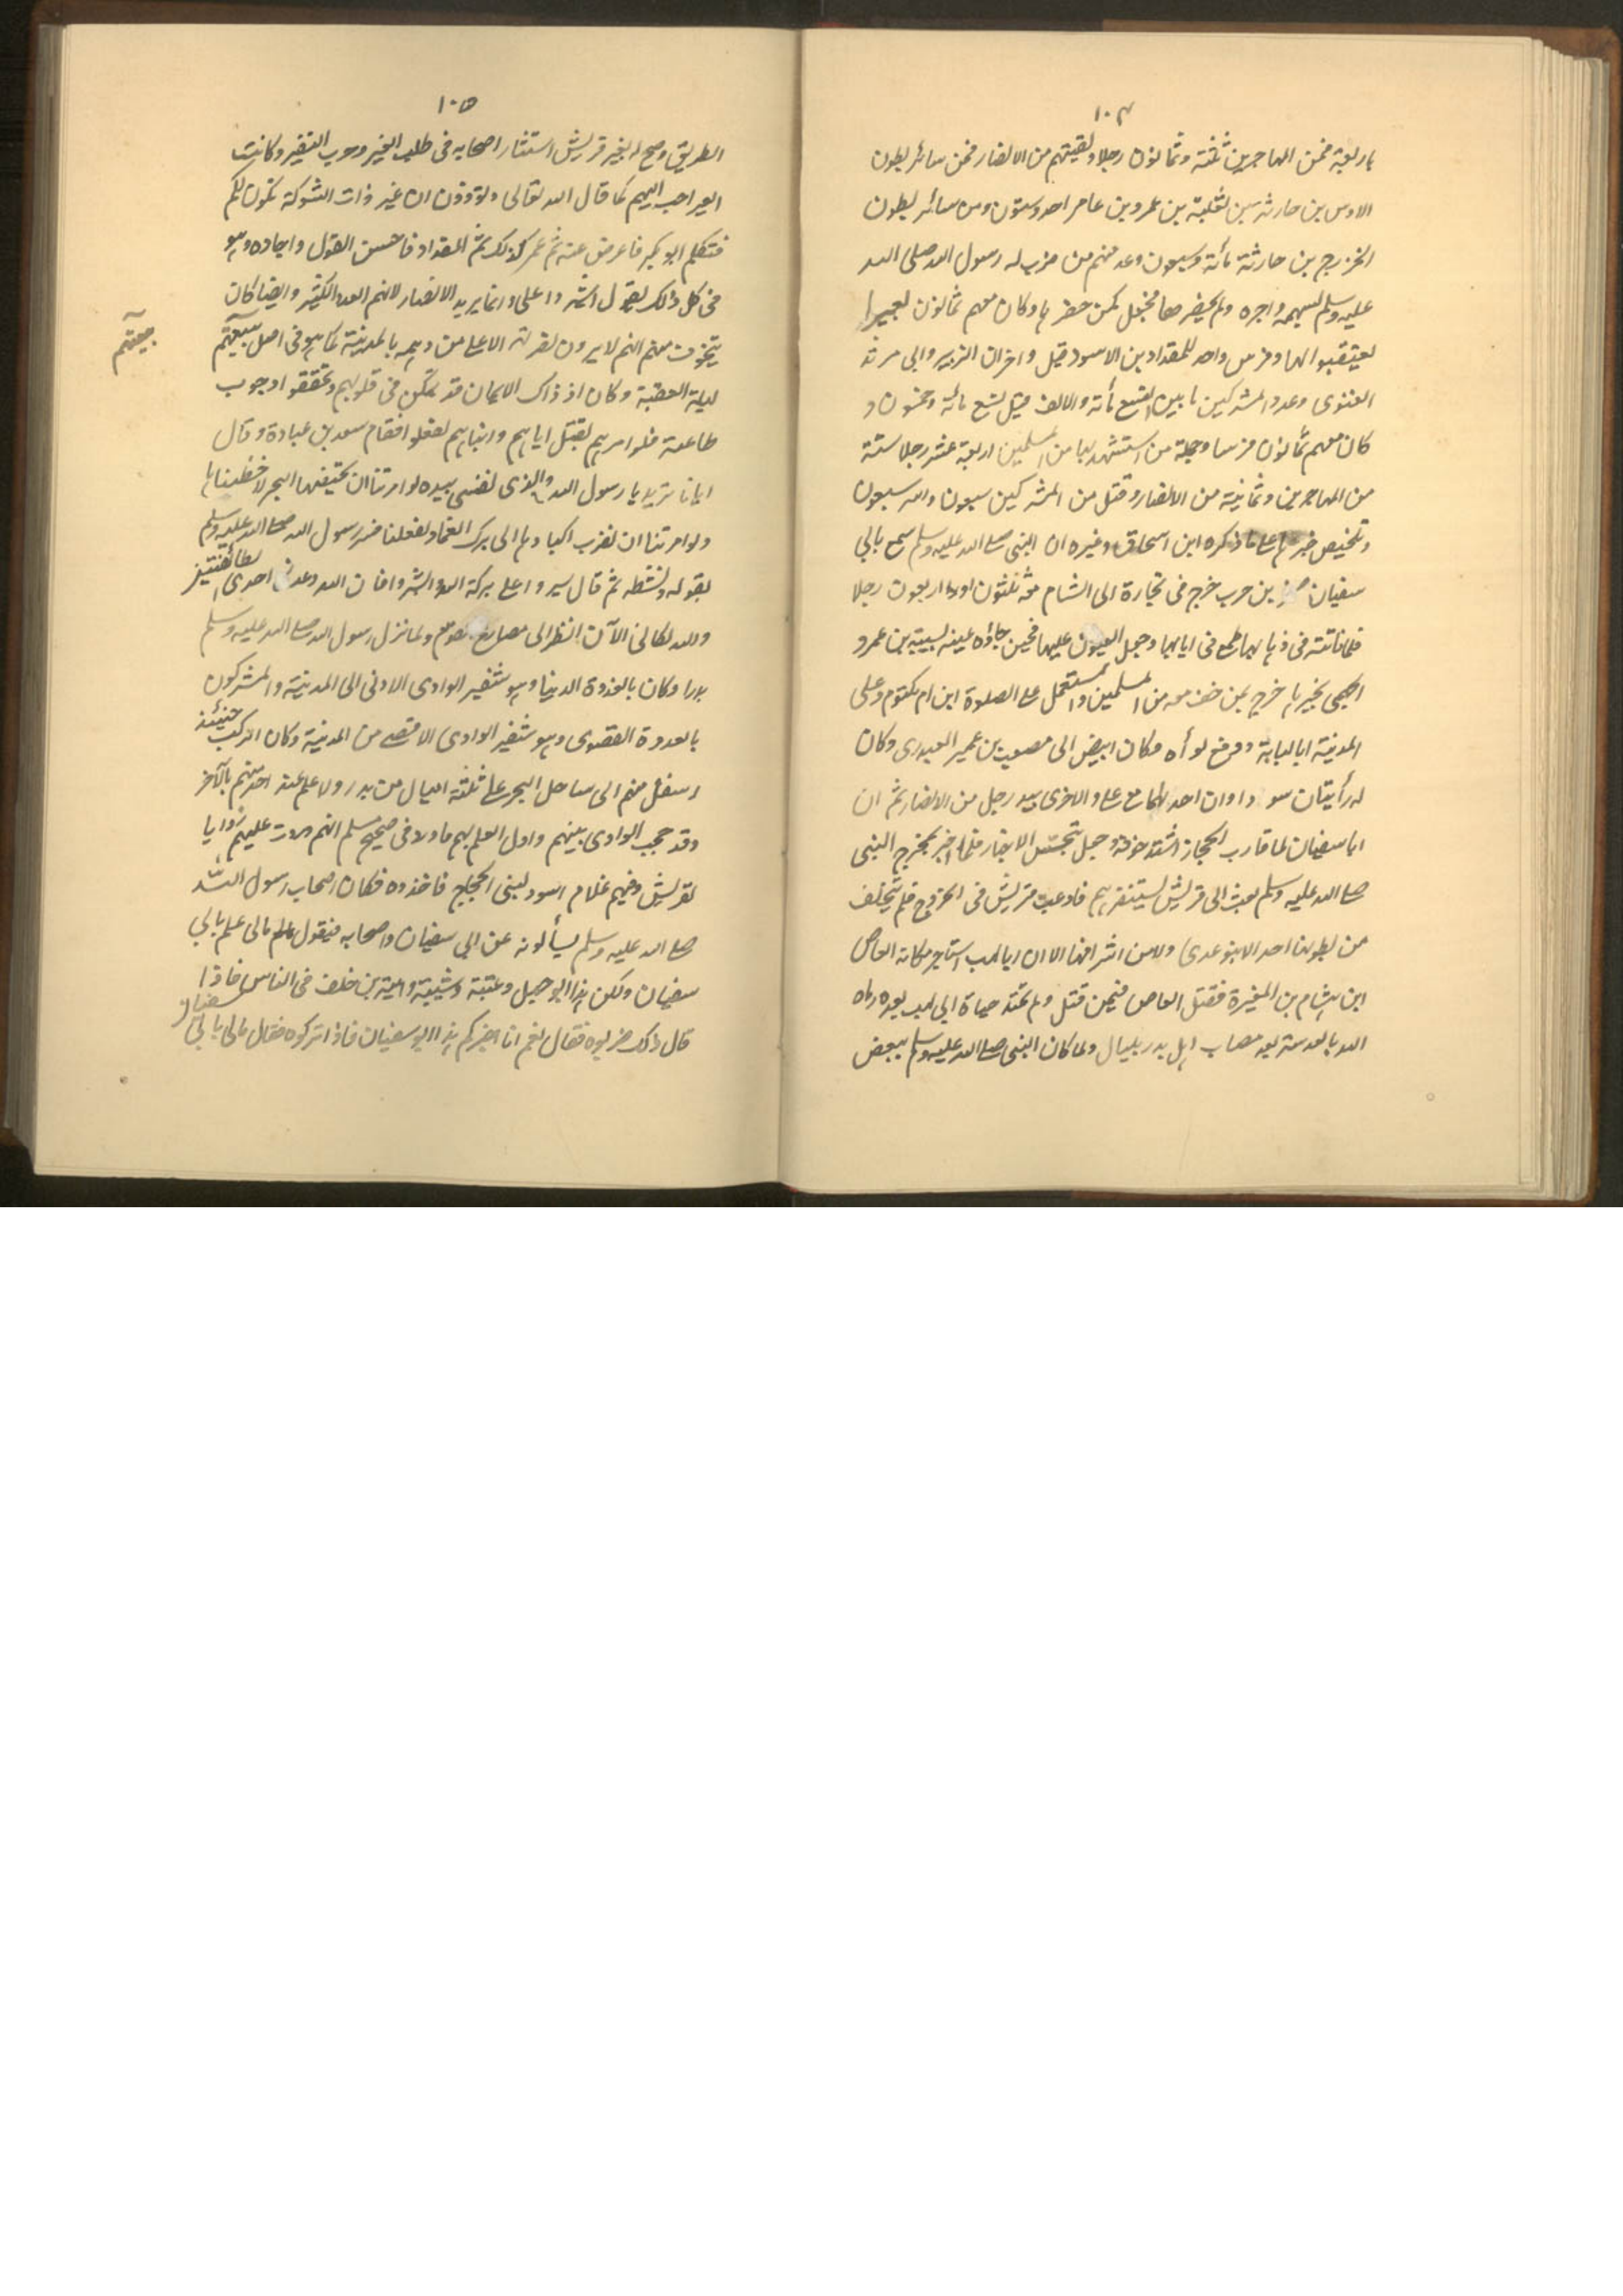 ١٠٤
باربعة فمن المهاجرين ثلثة وثمانون رجلا وبقيتهم من الانصار فمن سائر بطون
الاوس بن حارثه بن ثعلبة بن عمرو بن عامر احد وستون ومن سائر بطون
الخزرج بن حارثة مائة وسبعون وعد منهم من ضرب له رسول الله صلى الله
عليه وسلم بسهمه واجره ولم يحضرها فجعل كمن حضرها وكان معهم ثمانون بعيرا
يعتقبونها وفرس واحد للمقداد بن الاسود قيل واخران للزبير وابى مرثد
الغنوى وعدد المشركين ما بين التسع مأته والالف قيل تسع مائة وخمسون و
كان معهم ثمانون فرسا وجملة من استشهد بها من المسلمين اربعة عشر رجلا ستة
من المهاجرين وثمانية من الانصار وقتل من المشركين سبعون واسر سبعون
وتلخيص خبرهم على ما ذكره ابن اسحاق وغيره ان النبى صلى الله عليه وسلم سمع بابي
سفيان بن حرب خرج فى تجارة الى الشام معه ثلثون او اربعون رجلا
فلما فاتته فى ذهابها طمع فى ايابها وجعل العيون عليها فحين جاؤه عينه بسبسة بن عمرو
الجهنى بخبرها خرج بمن خف معه من المسلمين واستعمل على الصلوة ابن ام مكتوم وعلى
المدينة ابا لبابة ودفع لوأه وكان ابيض الى مصعب بن عمير العبدرى وكان
له رأيتان سوداوان احداهما مع على والاخرى بيد رجل من الانصار ثم ان
ابا سفيان لما قارب الحجاز اشتد خوفه وجعل يتجسس الاخبار فلما اخبر بمخرج النبى
صلى الله عليه وسلم بعث الى قريش ليستنفرهم فاوعبت قريش فى الخروج فلم يتخلف
من بطونها احد الا بنو عدى ولا من اشرافها الا ان ابا لهب استاجر مكانه العاص
ابن هشام بن المغيرة فقتل العاص فيمن قتل ولم تمتد حياة ابى لهب بعده رماه
الله بالعدسة بعد مصاب اهل بدر بليال ولما كان النبى صلى الله عليه وسلم ببعض
١٠٥
الطريق وصح له نفير قريش استشار اصحابه فى طلب العير وحرب النفير وكانت
العير احب اليهم كما قال الله تعالى وتودون ان غير ذات الشوكة تكون لكم
فتكلم ابو بكر فاعرض عنه ثم عمر كذلك ثم المقداد فاحسن القول واجاده وهو
فى كل ذلك يقول اشيروا على وانما يريد الانصار لانهم العدد الكثير وايضا كان
يتخوف منهم انهم لا يرون نصرته الا على من دهمه بالمدينة كما هو فى اصل بيعتهم
بيعتهم
ليلة العقبة وكان اذ ذاك الايمان قد تمكن فى قلوبهم وتحققوا وجوب
طاعته فلو امرهم بقتل ابايهم وابنايهم لفعلوا فقام سعد بن عبادة وقال
ايانا تريد يا رسول الله والذى نفسى بيده لو امرتنا ان نخيضها البحر لاخضناها
ولو امرتنا ان نضرب اكبادها الى برك الغماد لفعلنا فسر رسول الله صلى الله عليه وسلم
بقوله ونشطه ثم قال سيروا على بركة الله وابشروا فان الله وعدنى احدى الطائفتين
والله لكانى الآن انظر الى مصارع القوم ولما نزل رسول الله صلى الله عليه وسلم
بدرا وكان بالعدوة الدنيا وهو شفير الوادى الادنى الى المدينة والمشركون
بالعدوة القصوى وهو شفير الوادى الاقصى من المدينة وكان الركب حينئذ
اسفل منهم الى ساحل البحر على ثلثة اميال من بدر ولا علم عند احد منهم بالآخر
وقد حجب الوادى بينهم واول العلم بهم ما ولا فى صحيح مسلم انهم وردت عليهم روايا
لقريش وفيهم غلام اسود لبنى الحجاج فاخذوه فكان اصحاب رسول الله
صلى الله عليه وسلم يسألونه عن ابى سفيان واصحابه فيقول مالى علم بابي
سفيان ولكن هذا ابو جهل وعتبة وشيبة وامية بن خلف فى الناس فاذا
قال ذلك ضربوه فقال نعم انا اخبركم هذا ابو سفيان فاذا تركوه فقال مالى بابي سفيان